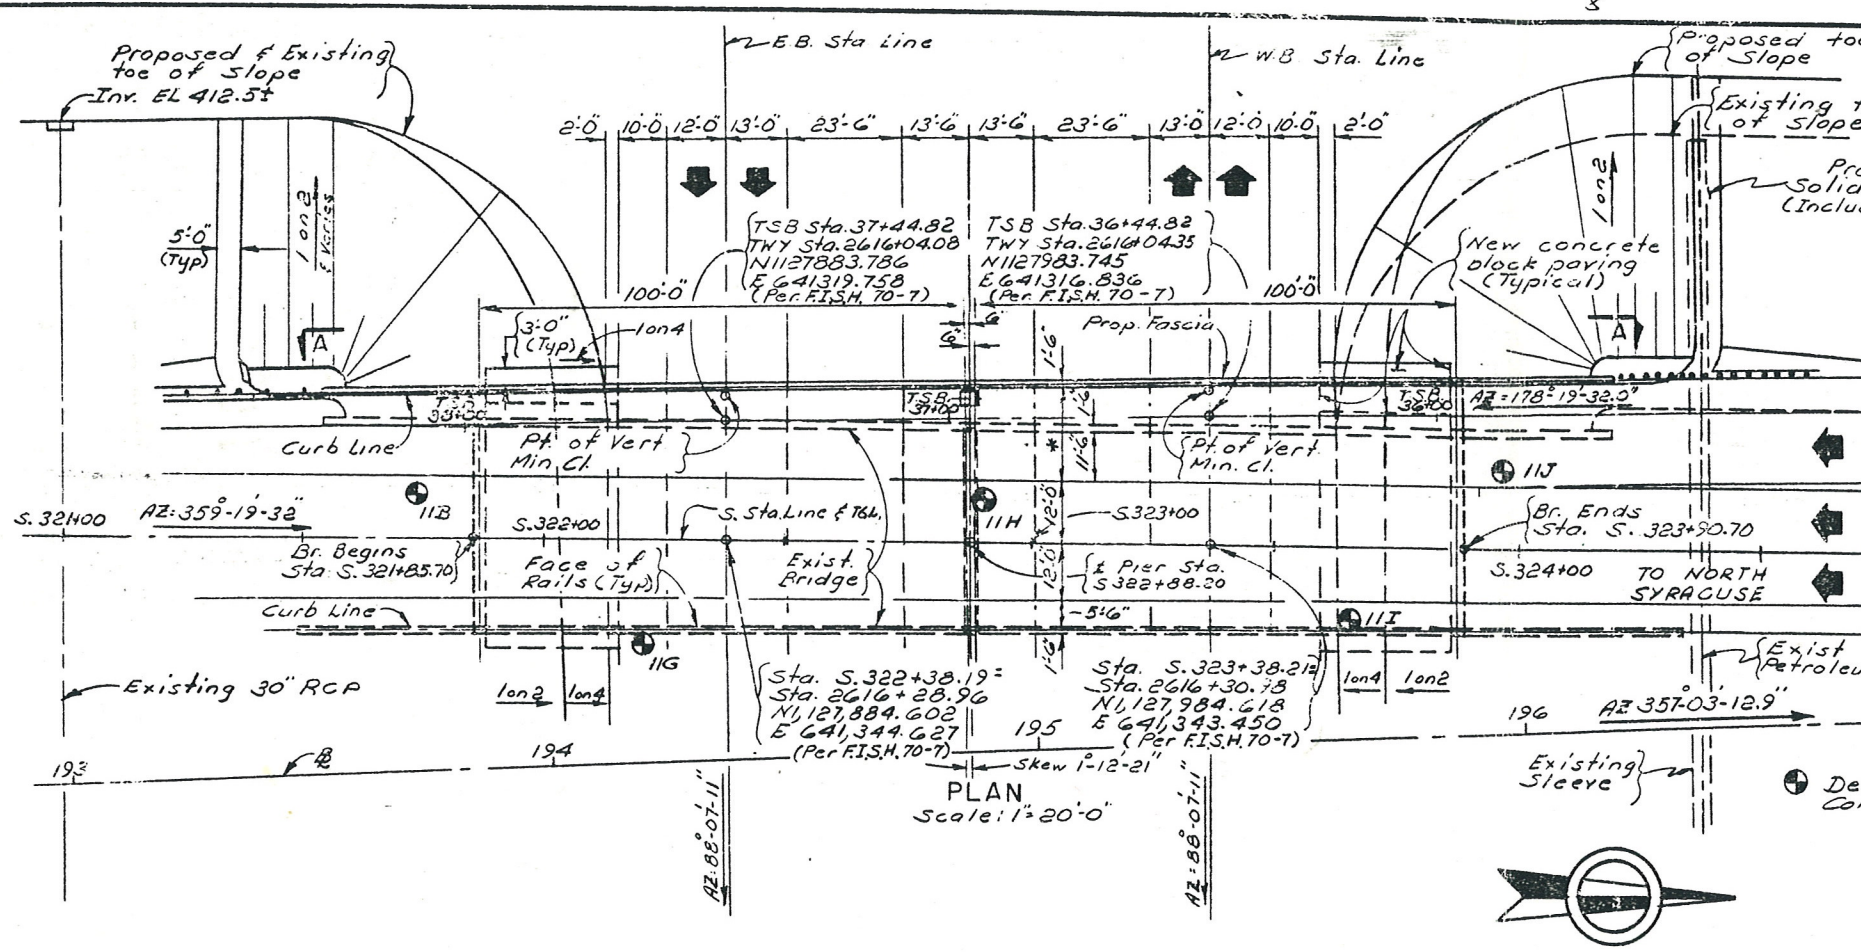 Proposed & Existing
toe of slope
Inv. EL 412.5±
E.B. Sta Line
W.B. Sta. Line
Proposed toe
of Slope
Existing
of Slope
Solid
(Inclu
2'-0" 10'-0 12'-0" 13'-0" 23'-6" 13'-6" 13'-6" 23'-6" 13'-0" 12'-0 10'-0" 2'-0"
5'-0"
(Typ)
1 on 2
& Varies
1 on 2
TSB Sta.37+44.82
TWY Sta.2616+04.08
N1127883.786
E 641319.758
(Per F.I.S.H. 70-7)
TSB Sta.36+44.82
TWY Sta.2616+04.35
N1127983.745
E 641316.836
(Per F.I.S.H. 70-7)
New concrete
block paving
(Typical)
100'-0"
100'-0"
3'-0"
(Typ)
1 on 4
6"
6"
1'-6"
Prop. Fascia
A
A
T.S.B.
38+00
T.S.B.
37+00
T.S.B.
36+00
AZ=178°-19'-32.0"
1'-6"
11'-6"
*
Curb Line
Pt. of Vert
Min Cl.
Pt. of Vert.
Min. Cl.
11J
11B
11H
S. 321+00
AZ: 359°-19'-32"
S.322+00
S. Sta. Line & TGL
12'-0"
S.323+00
Br. Ends
Sta. S. 323+90.70
Br. Begins
Sta. S. 321+85.70
Face of
Rails (Typ)
Exist.
Bridge
12'-0"
℄ Pier Sta.
S322+88.20
S.324+00
TO NORTH
SYRACUSE
Curb Line
5'-6"
11I
11G
1'-6"
Exist
Petroleu
Existing 30" RCP
1 on 2
1 on 4
Sta. S. 322+38.19=
Sta. 2616+28.96
N1,127,884.602
E 641,344.627
(Per F.I.S.H. 70-7)
Sta. S. 323+38.21=
Sta. 2616+30.98
N1,127,984.618
E 641,343.450
(Per F.I.S.H. 70-7)
1 on 4
1 on 2
AZ 357°-03'-12.9"
193
194
195
196
Skew 1°-12'-21"
Existing
Sleeve
PLAN
Scale: 1"=20'-0"
AZ: 88°-07'-11"
AZ = 88°-07'-11"
De
Co